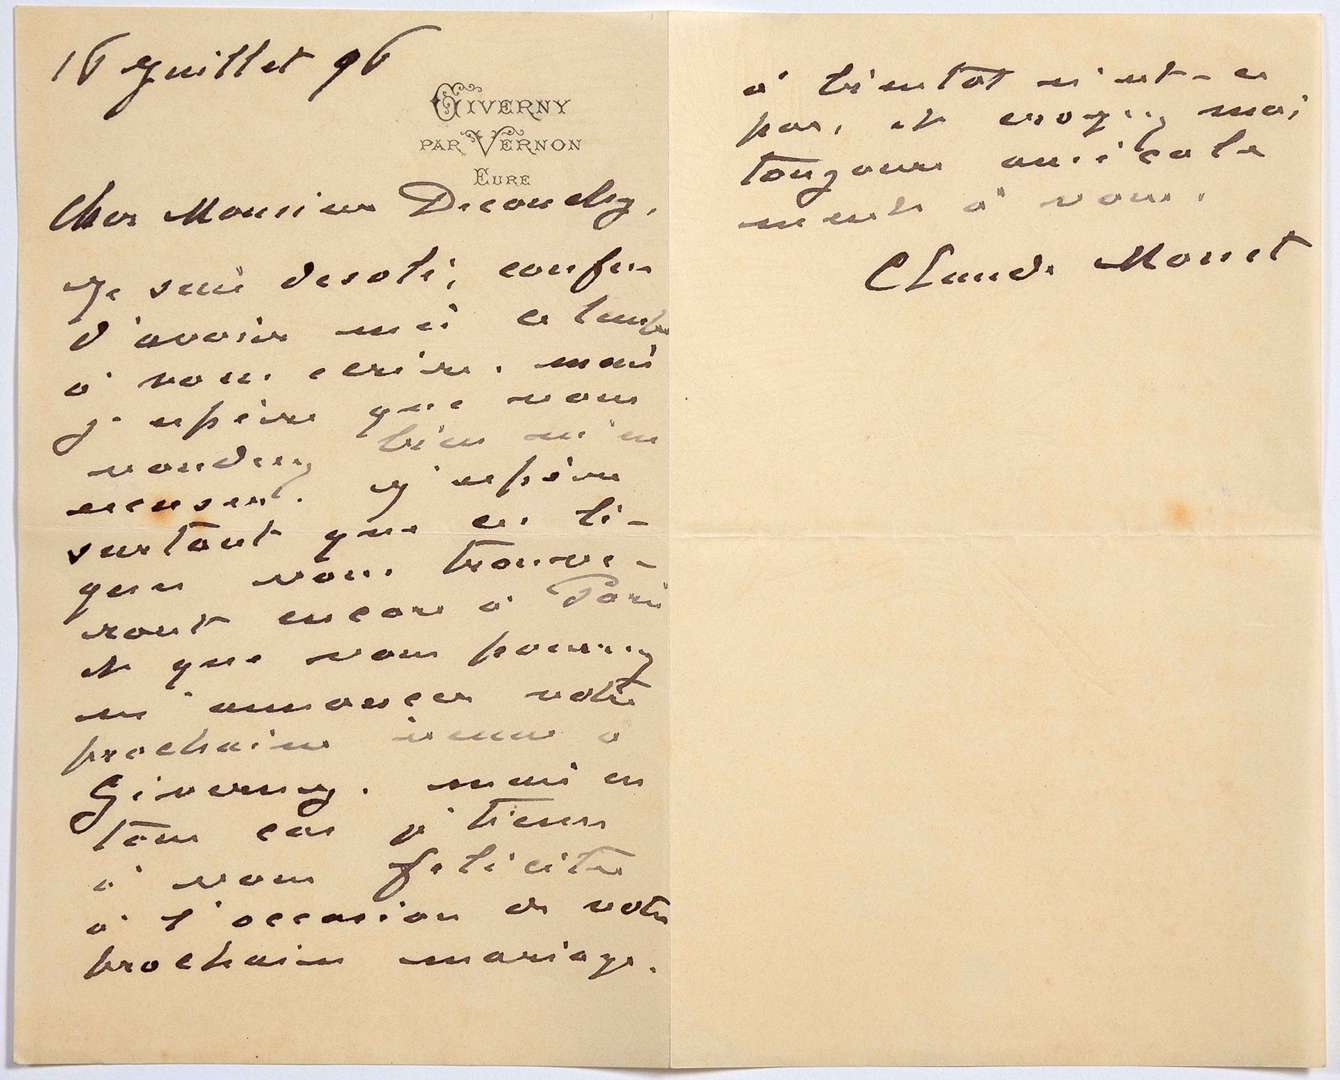 16 Juillet 96
GIVERNY
PAR VERNON
EURE
Cher Monsieur Deconchy,
Je suis desolé, confus
d'avoir mis ce temps
à vous ecrire. mais
j'espère que vous
voudrez bien m'en
excuser. J'espère
surtout que ces li-
gnes vous trouve-
ront encore à Paris
et que vous pourrez
m'annoncer votre
prochaine venue à
Giverny. mais en
tous cas je tiens
à vous feliciter
à l'occasion de votre
prochain mariage.
à bientot n'est-ce
pas, et croyez moi
toujours amicale
ment à vous.
Claude Monet